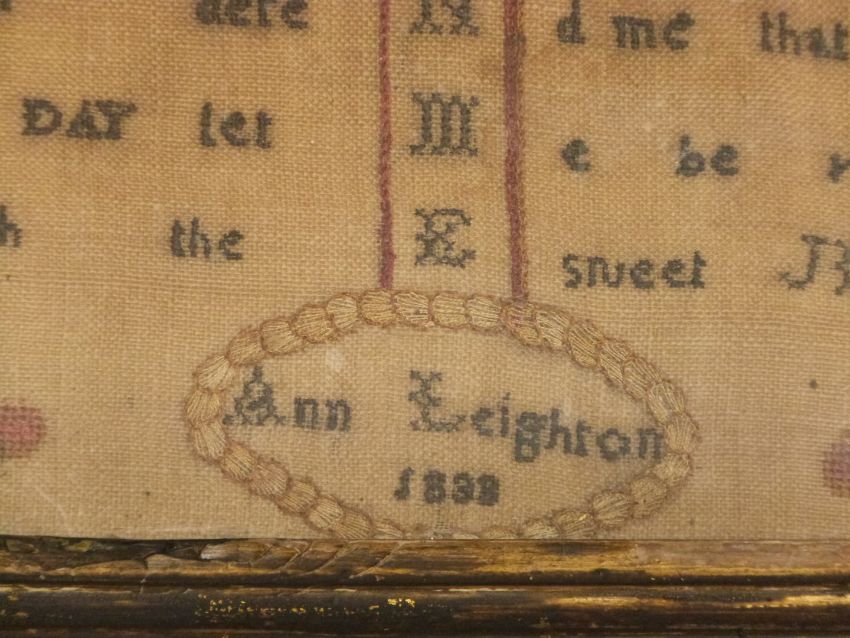 dere N d me that
DAY let M e be
the E sweet
Ann Leighton
1838